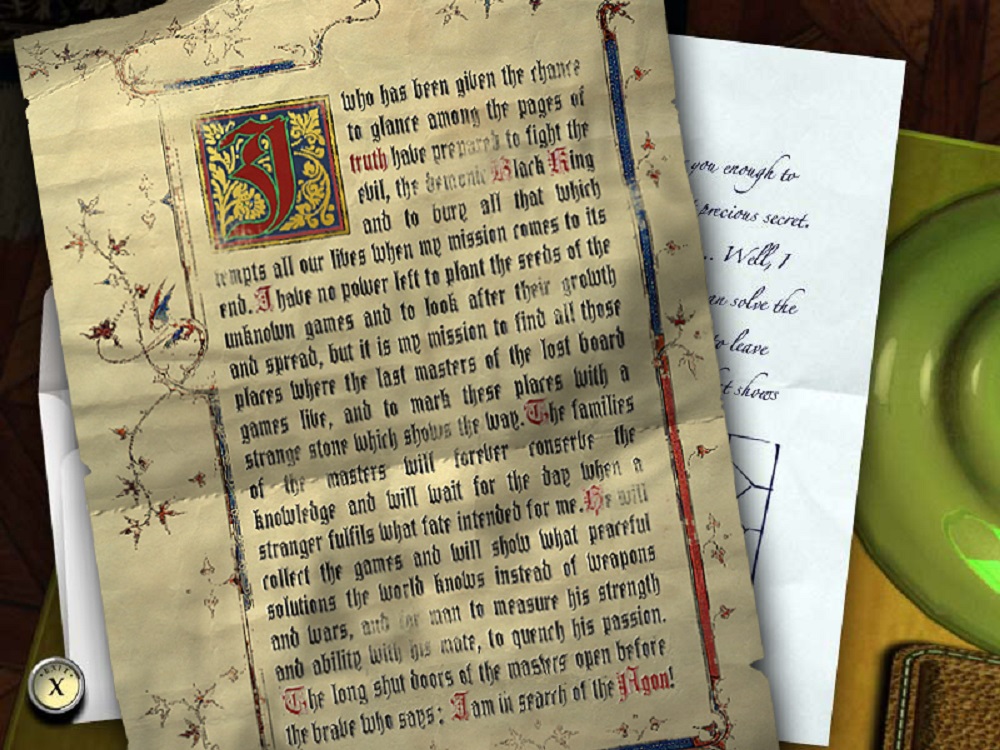 I who has been given the chance
to glance among the pages of
truth have prepared to fight the
evil, the demonic Black King
and to bury all that which
tempts all our lives when my mission comes to its
end. I have no power left to plant the seeds of the
unknown games and to look after their growth
and spread, but it is my mission to find all those
places where the last masters of the lost board
games live, and to mark these places with a
strange stone which shows the way. The families
of the masters will forever conserve the
knowledge and will wait for the day when a
stranger fulfils what fate intended for me. He will
collect the games and will show what peaceful
solutions the world knows instead of weapons
and wars, and for man to measure his strength
and ability with his mate, to quench his passion.
The long shut doors of the masters open before
the brave who says: I am in search of the Agon!
you enough to
precious secret.
.. Well, I
solve the
to leave
shows
EXIT
X